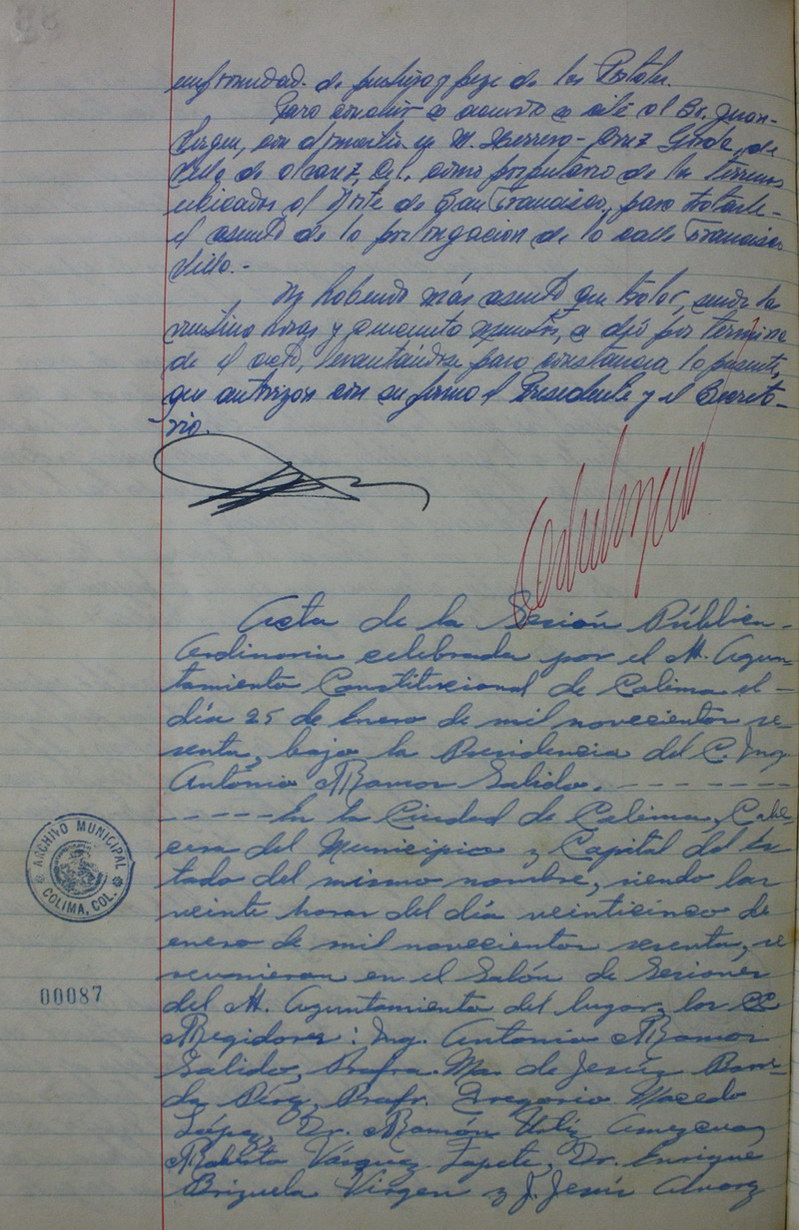 de justicia y paz de los Portales.
Para concluir se acuerda se cite al Sr. Juan
Virgen, con domicilio en M. Herrera - Cruz Gorda, de
Villa de Alvarez, Col. como propietario de los terrenos
ubicados al Norte de San Francisco, para tratarle
el asunto de la prolongación de la calle Francisco
Villa.-
No habiendo más asunto que tratar, siendo las
veintiuna horas y cincuenta minutos, se dió por termina-
do el acto, levantándose para constancia la presente,
que autorizan con su firma el Presidente y el Secreta-
rio.
Acta de la Sesión Pública
Ordinaria celebrada por el M. Ayun-
tamiento Constitucional de Colima el
día 25 de Enero de mil novecientos se-
senta, bajo la Presidencia del C. Ing.
Antonio Ramos Salido. - - - - - - - -
- - - - - En la Ciudad de Colima, Cabe-
cera del Municipio y Capital del Es-
tado del mismo nombre, siendo las
veinte horas del día veinticinco de
enero de mil novecientos sesenta, se
reunieron en el Salón de Sesiones
del M. Ayuntamiento del lugar, los CC
Regidores: Ing. Antonio Ramos
Salido, Profra. Ma. de Jesús Ban-
da Pérez, Profr. Gregorio Macedo
López, Dr. Ramón Amezcua,
Roberto Vázquez Zapete, Dr. Enrique
Brizuela Virgen y J. Jesús Alvarez
ARCHIVO MUNICIPAL
COLIMA, COL.
00087